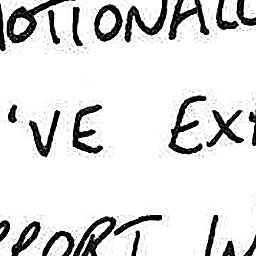 MOTIONALL
'VE EX
PPORT W